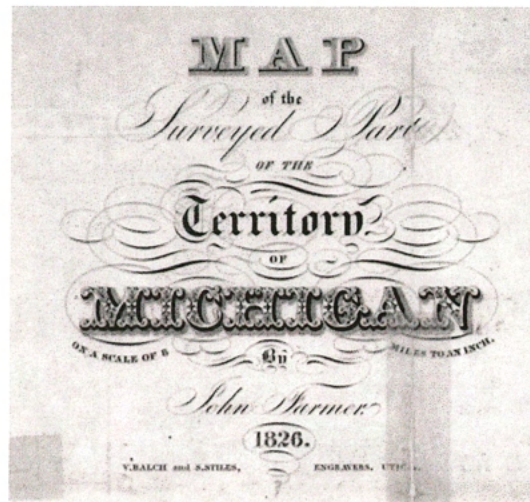 MAP
of the
Surveyed Part
OF THE
Territory
OF
MICHIGAN
ON A SCALE OF 8 MILES TO AN INCH.
By
John Farmer.
1826.
V. BALCH and S. STILES, ENGRAVERS, UTICA.